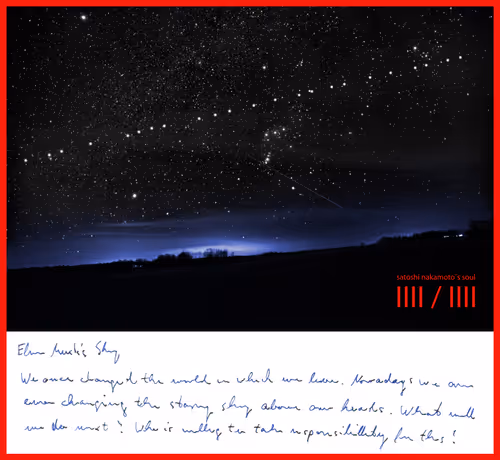 satoshi nakamoto's soul
IIII / IIII
Elon Musk's Sky
We once changed the world in which we live. Nowadays we are
even changing the starry sky above our heads. What will
we do next? Who is willing to take responsibility for this!